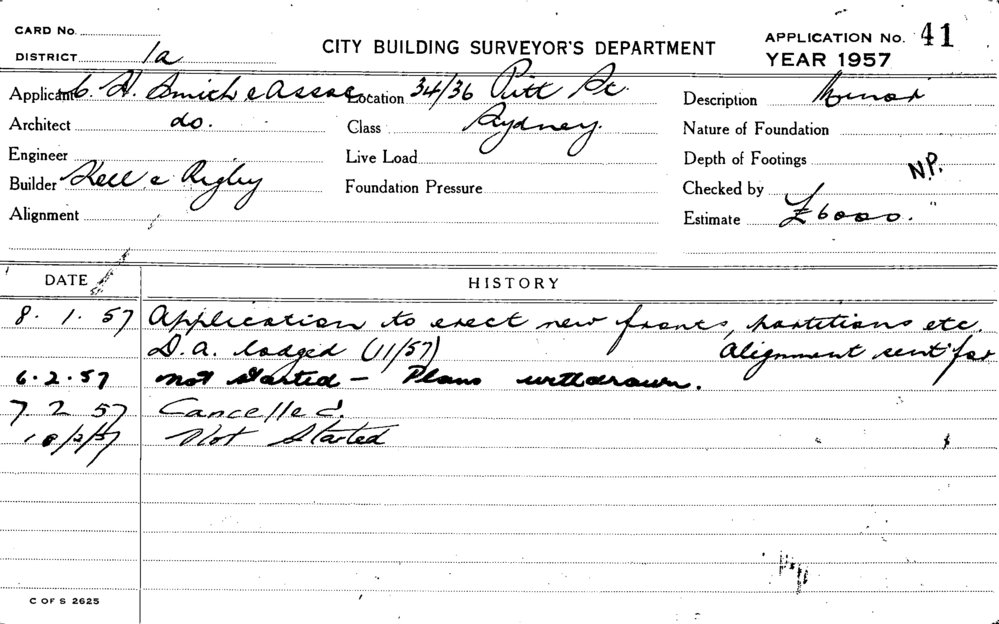 CARD No.
DISTRICT 1a
CITY BUILDING SURVEYOR'S DEPARTMENT
APPLICATION No. 41
YEAR 1957
Applicant C. H. Smith & Assoc Location 34/36 Pitt St. Description Minor
Architect do. Class Sydney. Nature of Foundation
Engineer Live Load Depth of Footings
Builder Kell & Rigby Foundation Pressure Checked by N.P.
Alignment Estimate £6000.
DATE HISTORY
8. 1. 57 Application to erect new fronts, partitions etc.
D.A. lodged (11/57) Alignment sent for
6.2.57 Not started - Plans withdrawn.
7 2 57 Cancelled.
/2/57 Not Started
C OF S 2625